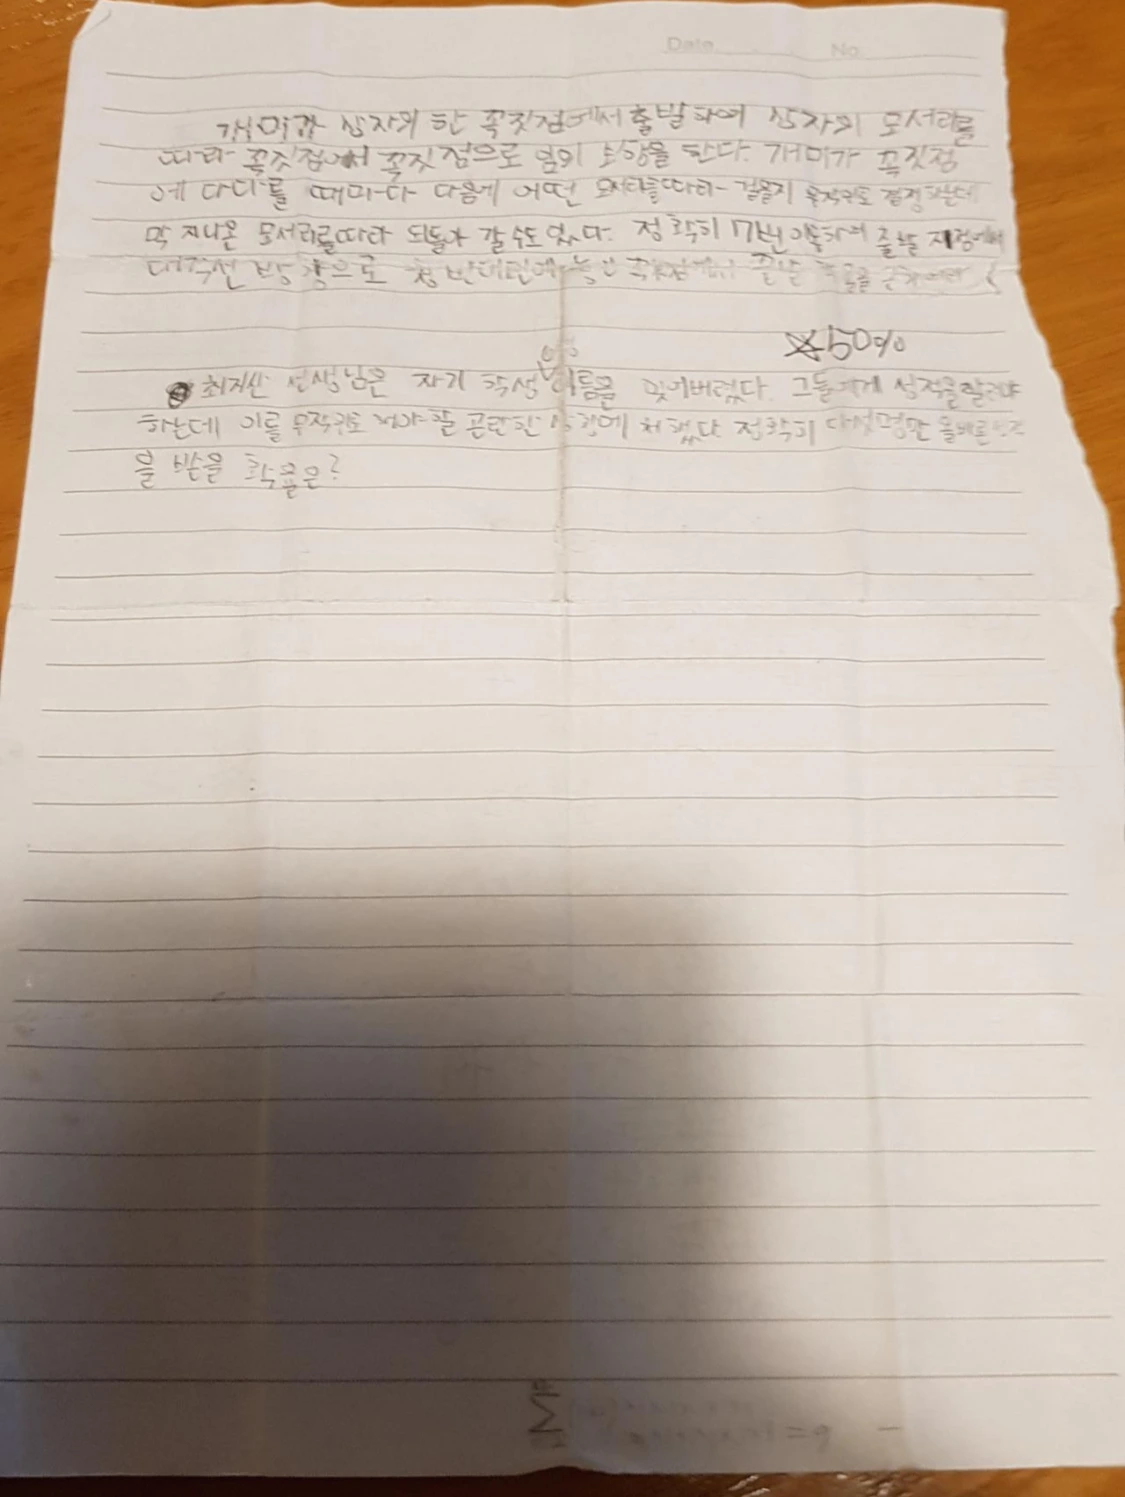 Date No
개미가 상자의 한 꼭짓점에서 출발하여 상자의 모서리를
따라 꼭짓점에서 꼭짓점으로 임의 보행을 한다. 개미가 꼭짓점
에 다다를 때마다 다음에 어떤 모서리를 따라 걸을지 무작위로 결정하는데
막 지나온 모서리를 따라 되돌아 갈 수도 있다. 정확히 7번 이동하여 출발 지점에서
대각선 방향으로 정반대편에 놓인 꼭짓점에서 끝날 확률을 구하여라
☆50%
최지산 선생님은 자기 학생 이름을 잊어버렸다. 그들에게 성적을
하는데 이를 무작위로 해야 할 곤란한 상황에 처했다 정확히 다섯명만 올바른
을 받을 확률은?